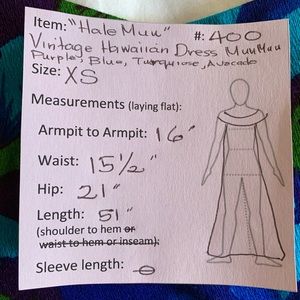 Item: "Hale Muu" #: 400
Vintage Hawaiian Dress MuuMuu
Purple, Blue, Turquoise, Avocado
Size: XS
Measurements (laying flat):
Armpit to Armpit: 16"
Waist: 15½"
Hip: 21"
Length: 51"
(shoulder to hem or
waist to hem or inseam):
Sleeve length: ⊖